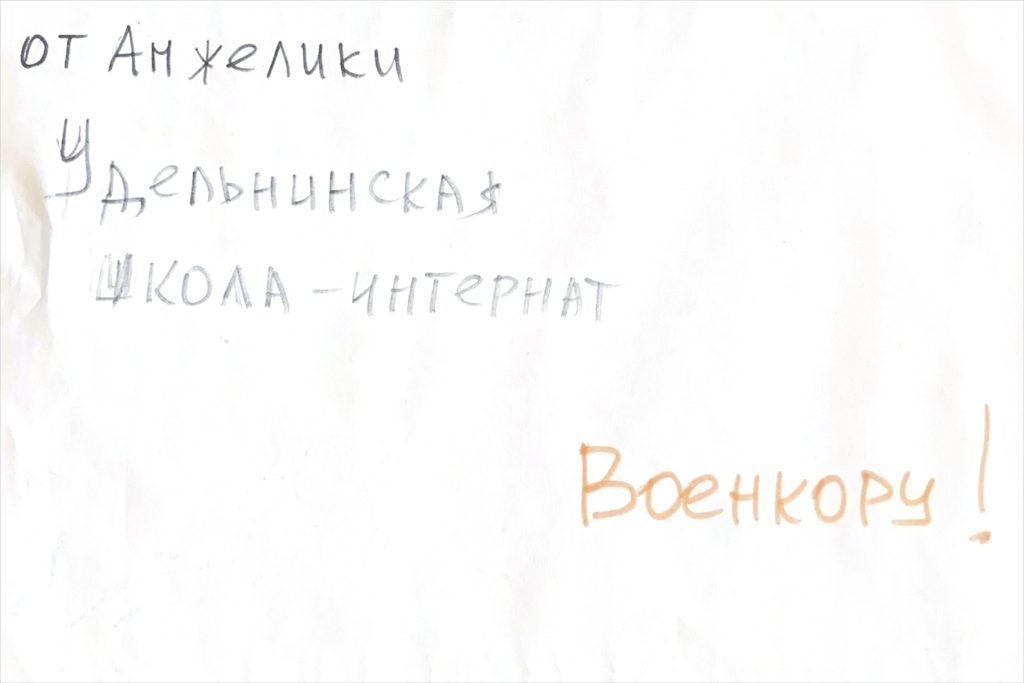 от Анжелики
Удельнинская
школа-интернат
Военкору!